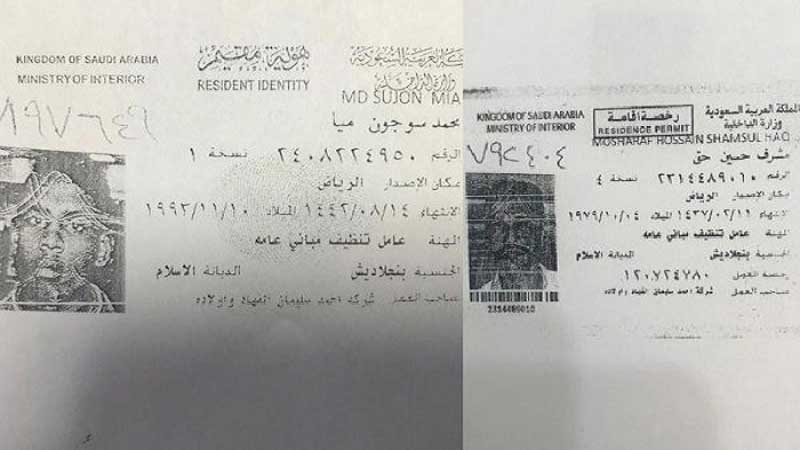 KINGDOM OF SAUDI ARABIA
MINISTRY OF INTERIOR
هوية مقيم
RESIDENT IDENTITY
المملكة العربية السعودية
وزارة الداخلية
MD SUJON MIA
٨٩٧٦٤٦
محمد سوجون ميا
الرقم ٢٤٠٨٢٢٤٩٥٠ نسخة ١
مكان الإصدار الرياض
الانتهاء ١٤٤٢/٠٨/١٤ الميلاد ١٩٩٢/١١/١٠
المهنة عامل تنظيف مباني عامه
الجنسية بنجلاديش الديانة الاسلام
صاحب العمل شركه احمد سليمان الفهاد واولاده
KINGDOM OF SAUDI ARABIA
MINISTRY OF INTERIOR
رخصة اقامة
RESIDENCE PERMIT
المملكة العربية السعودية
وزارة الداخلية
MOSHARAF HOSSAIN SHAMSUL HAQ
٧٩٢٤٠٤
مشرف حسين حق
الرقم ٢٣١٤٤٨٩٠١٠ نسخة ٤
مكان الإصدار الرياض
الانتهاء ١٤٣٧/٠٢/١١ الميلاد ١٩٧٩/١٠/٠٤
المهنة عامل تنظيف مباني عامه
الجنسية بنجلاديش الديانة الاسلام
رخصة العمل ١٢٠٧٢٤٧٨٠
صاحب العمل شركة احمد سليمان الفهاد واولاده
2314489010